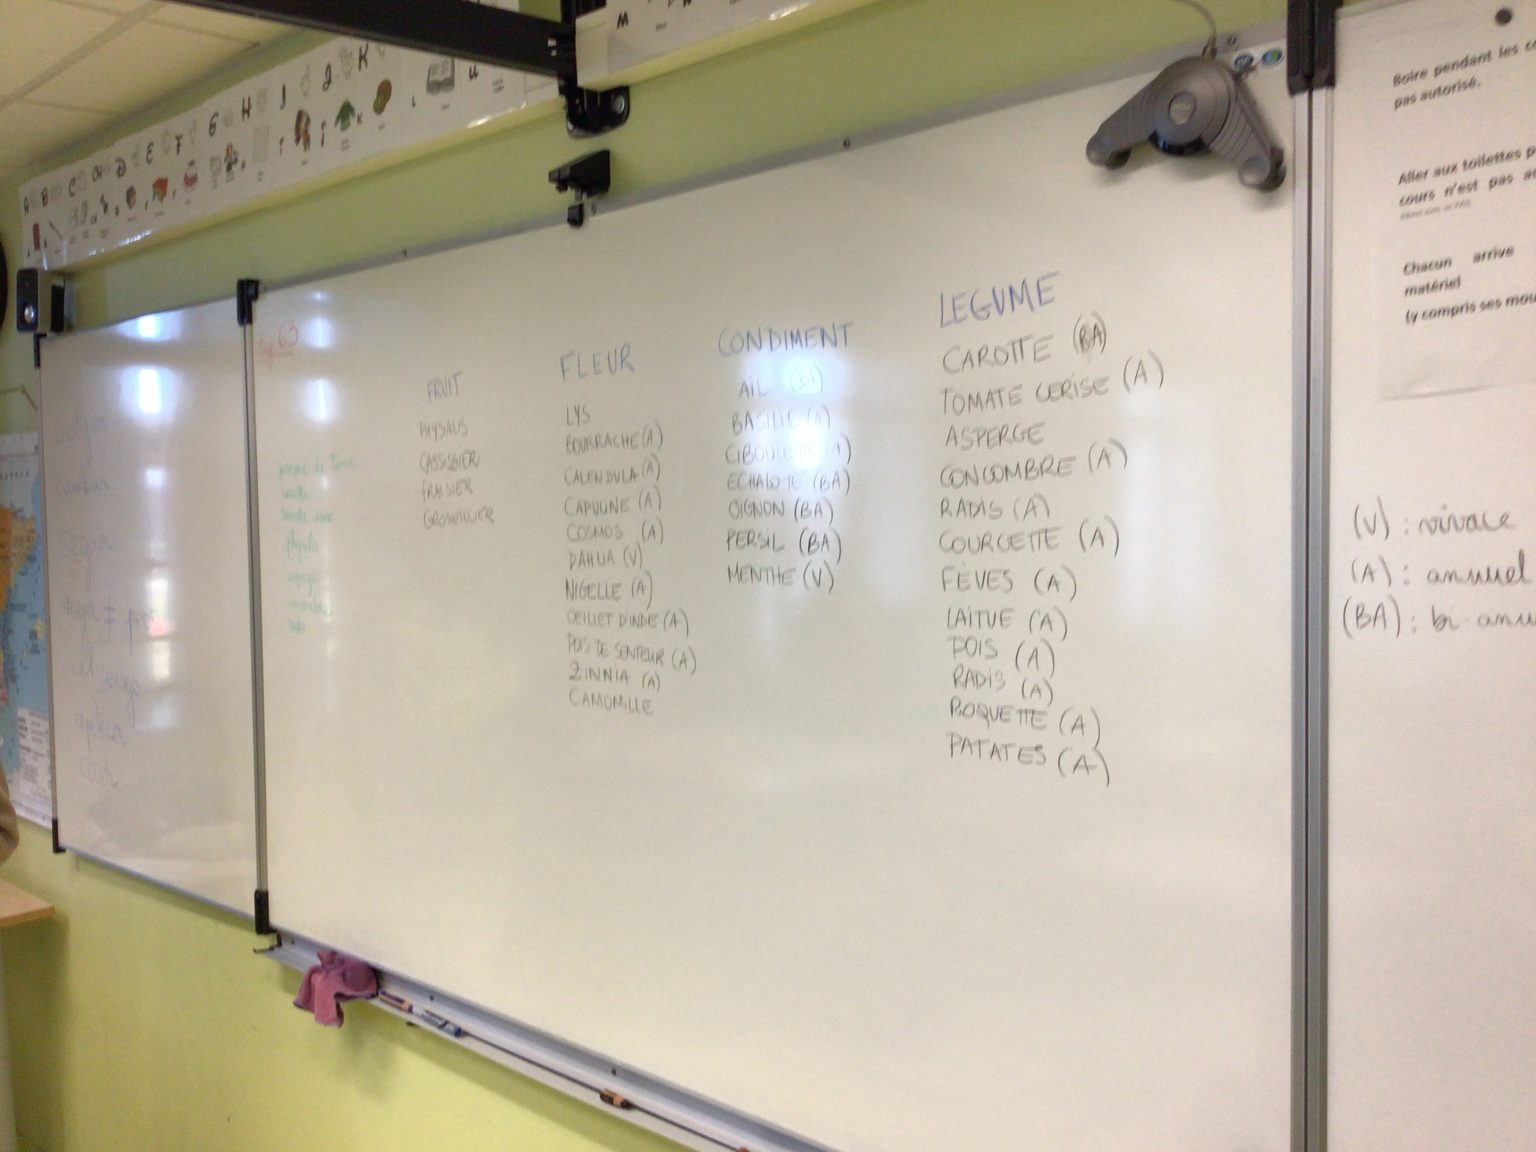 A B C CH D E F G H I J K
M
Boire pendant les
pas autorisé.
Aller aux toilettes
cours n'est pas
Chacun arrive
matériel
(y compris ses
63
FRUIT
PHYSALIS
CASSISSIER
FRAISIER
GROSEILLIER
FLEUR
LYS
BOURRACHE (A)
CALENDULA (A)
CAPUCINE (A)
COSMOS (A)
DAHLIA (V)
NIGELLE (A)
OEILLET D'INDE (A)
POIS DE SENTEUR (A)
ZINNIA (A)
CAMOMILLE
CONDIMENT
AIL (BA)
BASILIC (A)
CIBOULETTE (A)
ECHALOTE (BA)
OIGNON (BA)
PERSIL (BA)
MENTHE (V)
LEGUME
CAROTTE (BA)
TOMATE CERISE (A)
ASPERGE
CONCOMBRE (A)
RADIS (A)
COURGETTE (A)
FÈVES (A)
LAITUE (A)
POIS (A)
RADIS (A)
ROQUETTE (A)
PATATES (A)
(V) : vivace
(A) : annuel
(BA) : bi-annu